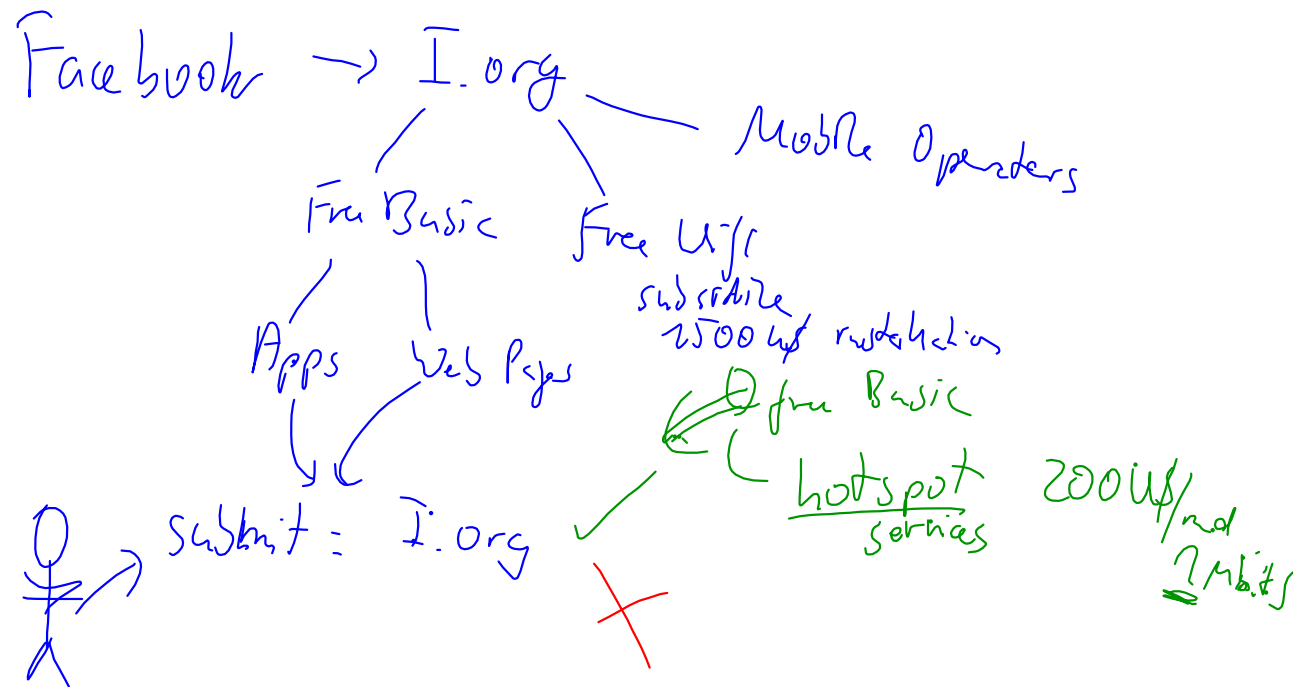 Facebook → I.org
Mobile Operators
Free Basic
Free Wifi
subsidize
1500 U$ installation
Apps
Web Pages
free Basic
hotspot
services
200 U$/md
2 Mbits
submit = I.org